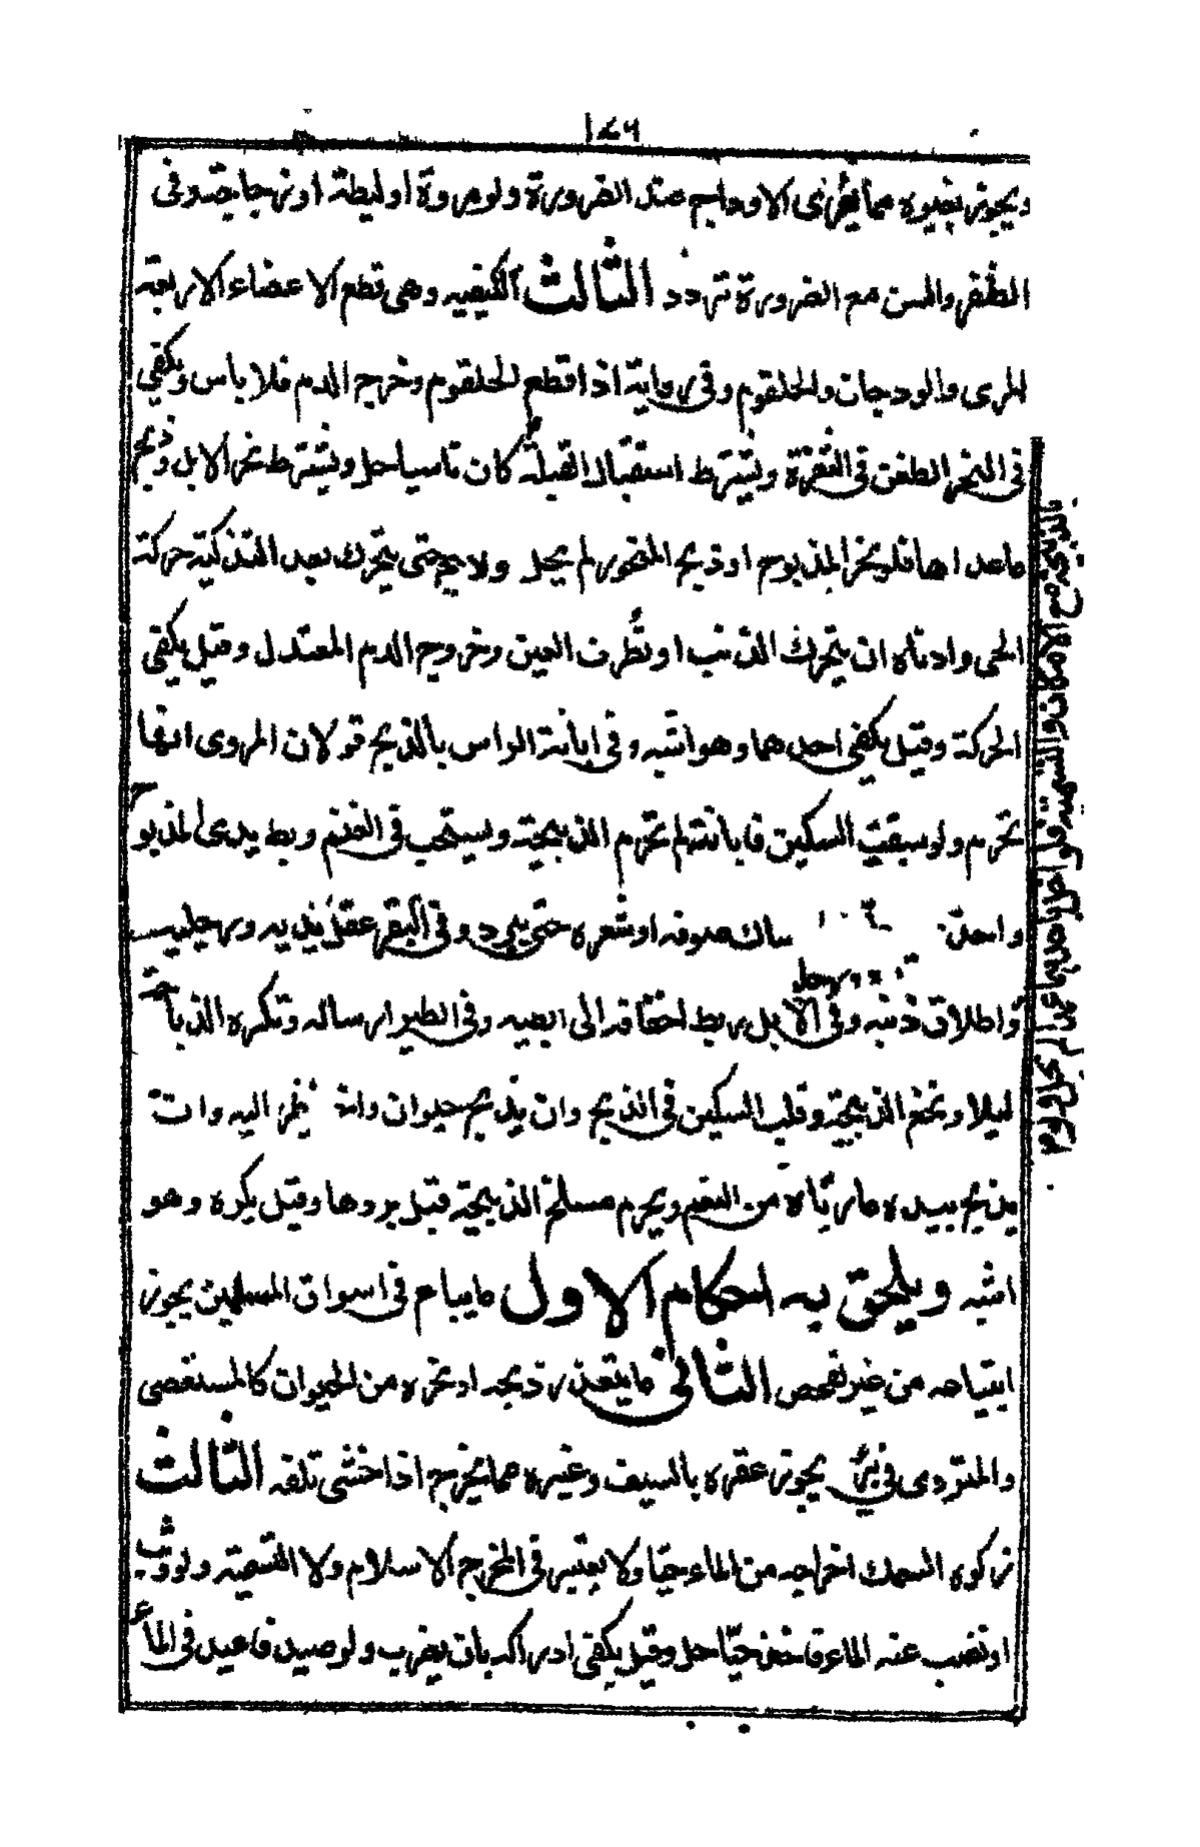 ١٤٦
ويجوز بغيره مما يفرى الاوداج عند الضرورة ولو مروة او ليطة او زجاجة وفى
الظفر والسن مع الضرورة تردد الثالث الكيفيه وهى قطع الاعضاء الاربعة
المرى والودجان والحلقوم وفى رواية اذا قطع الحلقوم وخرج الدم فلا باس ويكفي
فى النحر الطعن فى الثغرة ويشترط استقبال القبلة كان ناسيا حل ويشترط نحر الابل وذبح
ما عداها فلو نحر المذبوح او ذبح المنحور لم يحل ولا يح حتى يتحرك بعد التذكية حركة
الحى وادناه ان يتحرك الذنب او تطرف العين وخروج الدم المعتدل وقيل يكفى
الحركة وقيل يكفى احدهما وهو اشبه وفى ابانة الراس بالذبح قولان المروى انها
تحرم ولو سبقت السكين فابانته لم تحرم الذبيحة ويستحب فى الغنم ربط يدى المذبوح
واحدى امساك صوفه او شعره حتى يبرد وفى البقر عقد يديه ورجليه
واطلاق ذنبه وفى الابل ربط اخفافه الى ابطيه وفى الطير ارساله وتكره الذباحة
ليلا ونخع الذبيحة وقلب السكين فى الذبح وان يذبح حيوان واخر ينظر اليه وان
يذبح بيده ما رباه من النعم ويحرم سلخ الذبيحة قبل بردها وقيل يكره وهو
اشبه ويلحق به احكام الاول ما يباع فى اسواق المسلمين يجوز
ابتياعه من غير تفحص الثانى ما يتعذر ذبحه او نحره من الحيوان كالمستعصى
والمتردى فى بئر يجوز عقره بالسيف وغيره مما يخرج اذا خشى تلفه الثالث
زكوه السمك اخراجه من الماء حيا ولا يعتبر فى المخرج الاسلام ولا التسمية ولو وثب
او نضب عنه الماء فاخذ حيا حل وقيل يكفى ادراكه بان يضرب ولو صيد فاعيد فى الماء
بالذبيحة مع الامكان والتسمية فلو اخل باحديهما عمدا لم يحل ولو